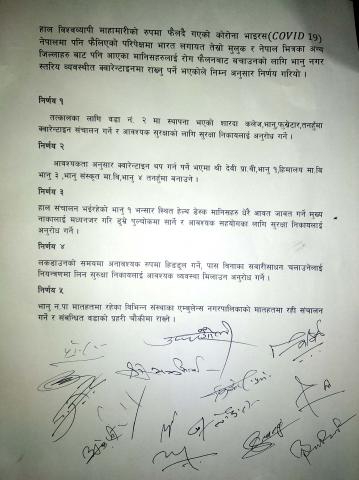 हाल विश्वव्यापी माहामारीको रुपमा फैलदै गएको कोरोना भाइरस(COVID 19)
नेपालमा पनि फैलिएको परिपेक्षमा भारत लगायत तेस्रो मुलुक र नेपाल भित्रका अन्य
जिल्लाहरु बाट पनि आएका मानिसहरुलाई रोग फैलनबाट बचाउनको लागि भानु नगर
स्तरिय व्यवस्थीत क्वारेन्टाइनमा राख्नु पर्ने भएकोले निम्न अनुसार निर्णय गरियो ।
निर्णय १
तत्कालका लागि वडा नं. २ मा स्थापना भएको शारदा कलेज,भानु तनहुँमा
क्वारेन्टाइन संचालन गर्ने र आवश्यक सुरक्षाको लागि सुरक्षा निकायलाई अनुरोध गर्ने ।
निर्णय २
आवश्यकता अनुसार क्वारेन्टिन थप गर्न पर्ने भएमा श्री देवी प्रा.वी,भानु १,हिमालय मा.वि
भानु ३ ,भानु संस्कृत मा.वि,भानु ४ तनहुँमा बनाउने ।
निर्णय ३
हाल संचालन भईरहेको भानु १ भन्सार स्थित हेल्थ डेस्क मानिसहरु धेरै आवत जावत गर्ने मुख्य
नाकालाई मध्यनजर गरि डुम्रे पुल्चोकमा सार्ने र आवश्यक सहयोगका लागि सुरक्षा निकायलाई
अनुरोध गर्ने ।
निर्णय ४
लकडाउनको समयमा अनावश्यक रुपमा हिडडुल गर्ने, पास विनाका सवारीसाधन चलाउनेलाई
नियन्त्रणमा लिन सुरुक्षा निकायलाई आवश्यक व्यवस्था मिलाउन अनुरोध गर्ने ।
निर्णय ५
भानु न.पा मातहतमा रहेका विभिन्न संस्थाका एम्बुलेन्स नगरपालिकाको मातहतमा रही संचालन
गर्ने र संबन्धित वडाको प्रहरी चौकीमा राख्ने ।